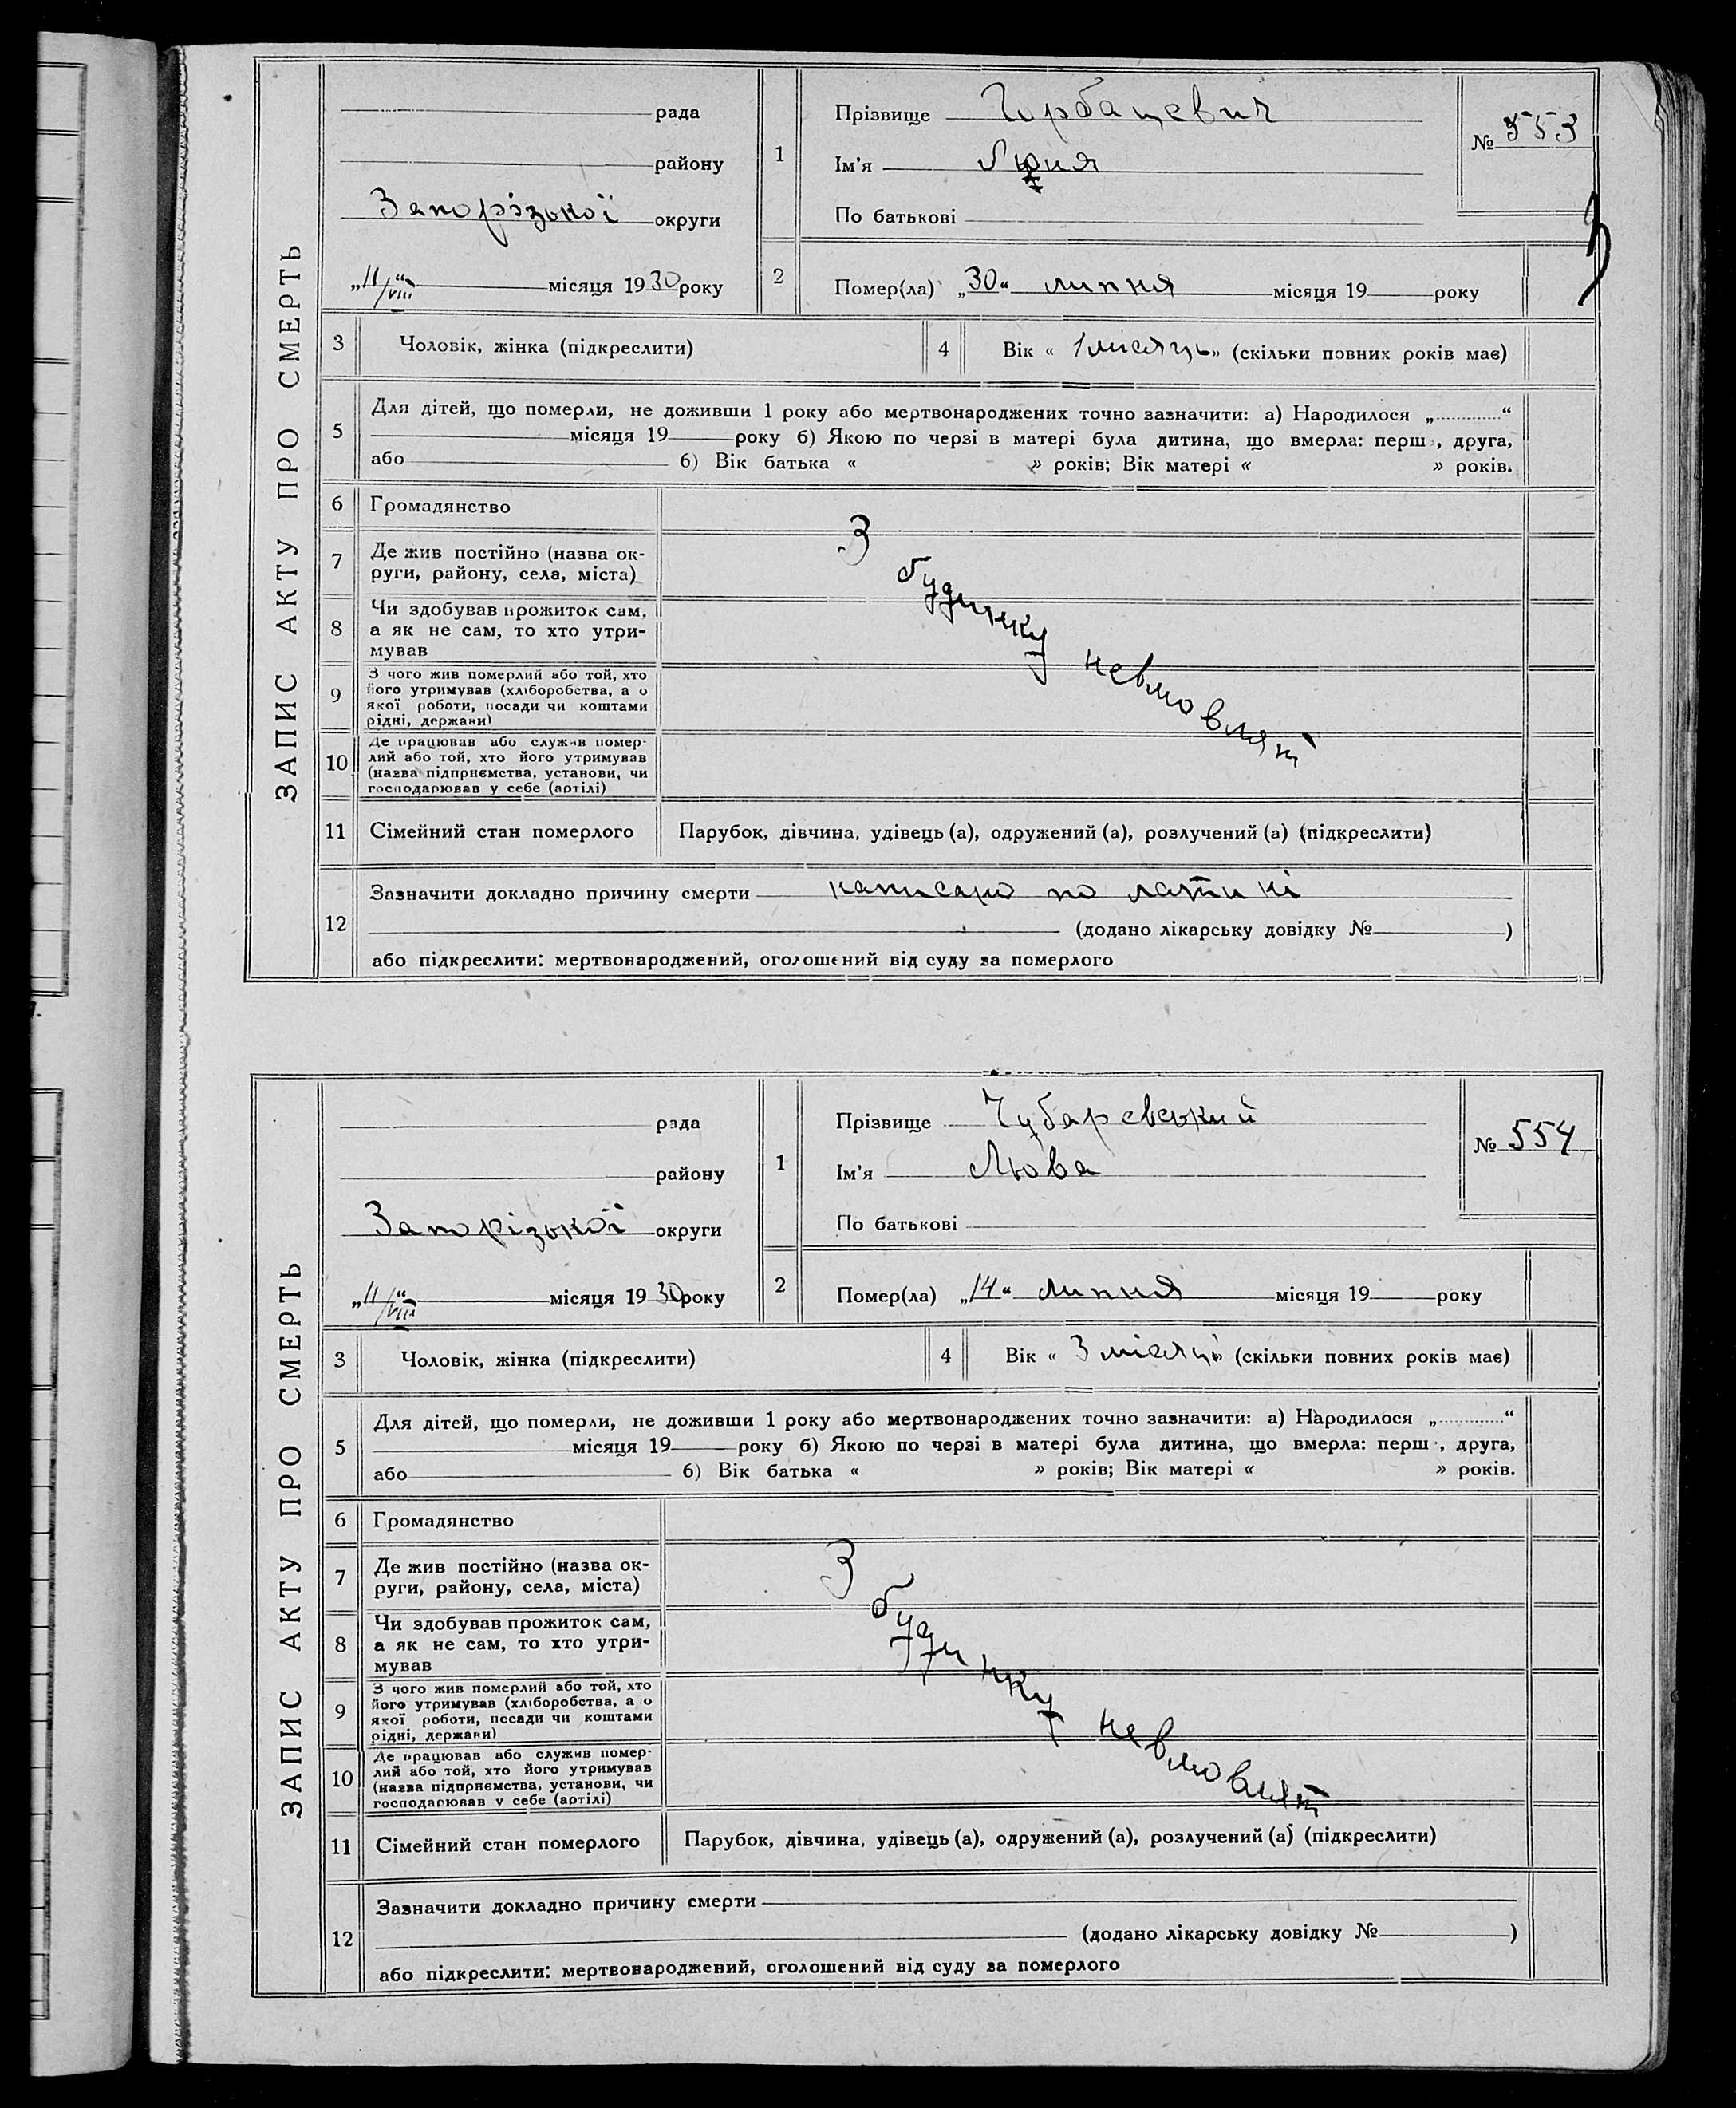 ЗАПИС АКТУ ПРО СМЕРТЬ
рада
району
Запорізької округи
„11/VIII“ місяця 1930 року
1
Прізвище
Ім'я
По батькові
№ 553
2
Помер(ла) „30“ липня місяця 19 року
3
Чоловік, жінка (підкреслити)
4
Вік « 1 місяць» (скільки повних років має)
5
Для дітей, що померли, не доживши 1 року або мертвонароджених точно зазначити: а) Народилося „............“
місяця 19 року б) Якою по черзі в матері була дитина, що вмерла: перш , друга,
або б) Вік батька « » років; Вік матері « » років.
6
Громадянство
7
Де жив постійно (назва ок-
руги, району, села, міста)
8
Чи здобував прожиток сам,
а як не сам, то хто утри-
мував
9
З чого жив померлий або той, хто
його утримував (хліборобства, а о
якої роботи, посади чи коштами
рідні, держави)
10
Де працював або служив помер-
лий або той, хто його утримував
(назва підприємства, установи, чи
господарював у себе (артілі)
З будинку невмовлят
11
Сімейний стан померлого
Парубок, дівчина, удівець (а), одружений (а), розлучений (а) (підкреслити)
12
Зазначити докладно причину смерти написано по латині
(додано лікарську довідку № )
або підкреслити: мертвонароджений, оголошений від суду за померлого
ЗАПИС АКТУ ПРО СМЕРТЬ
рада
району
Запорізької округи
„11/VIII“ місяця 1930 року
1
Прізвище Чубаревський
Ім'я Люва
По батькові
№ 554
2
Помер(ла) „14“ липня місяця 19 року
3
Чоловік, жінка (підкреслити)
4
Вік « 3 місяці» (скільки повних років має)
5
Для дітей, що померли, не доживши 1 року або мертвонароджених точно зазначити: а) Народилося „............“
місяця 19 року б) Якою по черзі в матері була дитина, що вмерла: перш , друга,
або б) Вік батька « » років; Вік матері « » років.
6
Громадянство
7
Де жив постійно (назва ок-
руги, району, села, міста)
8
Чи здобував прожиток сам,
а як не сам, то хто утри-
мував
9
З чого жив померлий або той, хто
його утримував (хліборобства, а о
якої роботи, посади чи коштами
рідні, держави)
10
Де працював або служив помер-
лий або той, хто його утримував
(назва підприємства, установи, чи
господарював у себе (артілі)
З будинку невмовлят
11
Сімейний стан померлого
Парубок, дівчина, удівець (а), одружений (а), розлучений (а) (підкреслити)
12
Зазначити докладно причину смерти
(додано лікарську довідку № )
або підкреслити: мертвонароджений, оголошений від суду за померлого